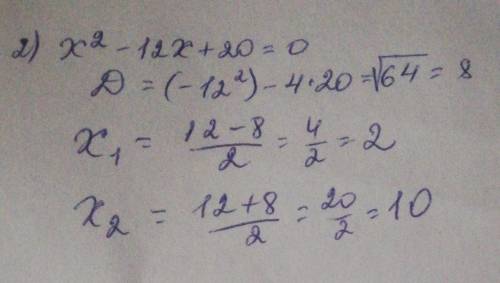 2) x² - 12x + 20 = 0
D = (-12²) - 4·20 = √64 = 8
x₁ = (12 - 8)/2 = 4/2 = 2
x₂ = (12 + 8)/2 = 20/2 = 10